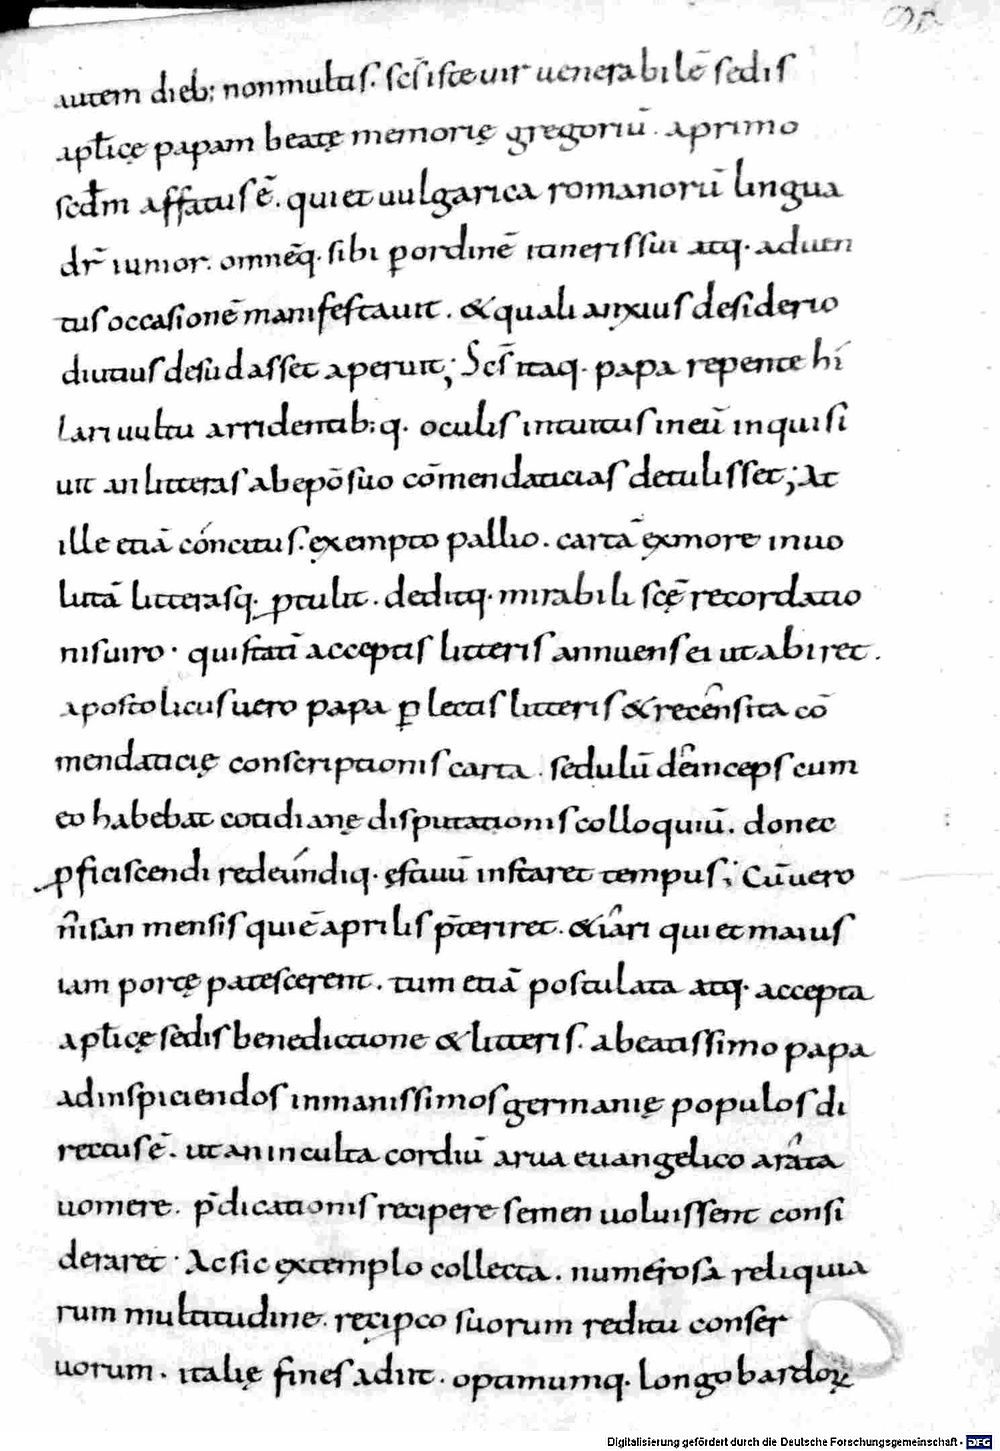 autem dieb; non multis. scs̄ iste uir uenerabilē sedis
aptłicę papam beatę memorię gregoriū. a primo
scdm̄ affatus ē. qui et uulgarica romanorū lingua
dr̄ iunior. omnēq· sibi ꝑ ordinē itineris sui atq· aduen
tus occasionē manifestauit. & quali anxius desiderio
diutius desudasset aperuit; Scs̄ itaq· papa repente hi
lari uultu arridentib;q. oculis intuitus in eū inquisi
uit an litteras ab epō suo cōmendaticias detulisset; At
ille etiā concitus. exempto pallio. cartā ex more inuo
lutā litterasq· ꝓtulit. deditq· mirabili scę̄ recordatio
nis uiro· qui statī acceptis litteris annuens ei ut abiret.
apostolicus uero papa ꝑlectis litteris & recensita cō
mendaticię conscriptionis carta. sedulū deinceps cum
eo habebat cotidianę disputationis colloquiū. donec
ꝓficiscendi redeundiq· ęstiuū instaret tempus; Cū uero
nisan mensis qui ē aprilis p̄teriret. & iari qui et maius
iam portę patescerent. tum etiā postulata atq· accepta
aptłicę sedis benedictione & litteris. a beatissimo papa
ad inspiciendos inmanissimos germanię populos di
rectus ē. ut an inculta cordiū arua euangelico arata
uomere. p̄dicationis recipere semen uoluissent consi
deraret· Ac sic extemplo collecta. numerosa reliquia
rum multitudine. recipco suorum reditu conser
uorum. italię fines adiit. optimumq· longobardoꝝ
Digitalisierung gefördert durch die Deutsche Forschungsgemeinschaft - DFG